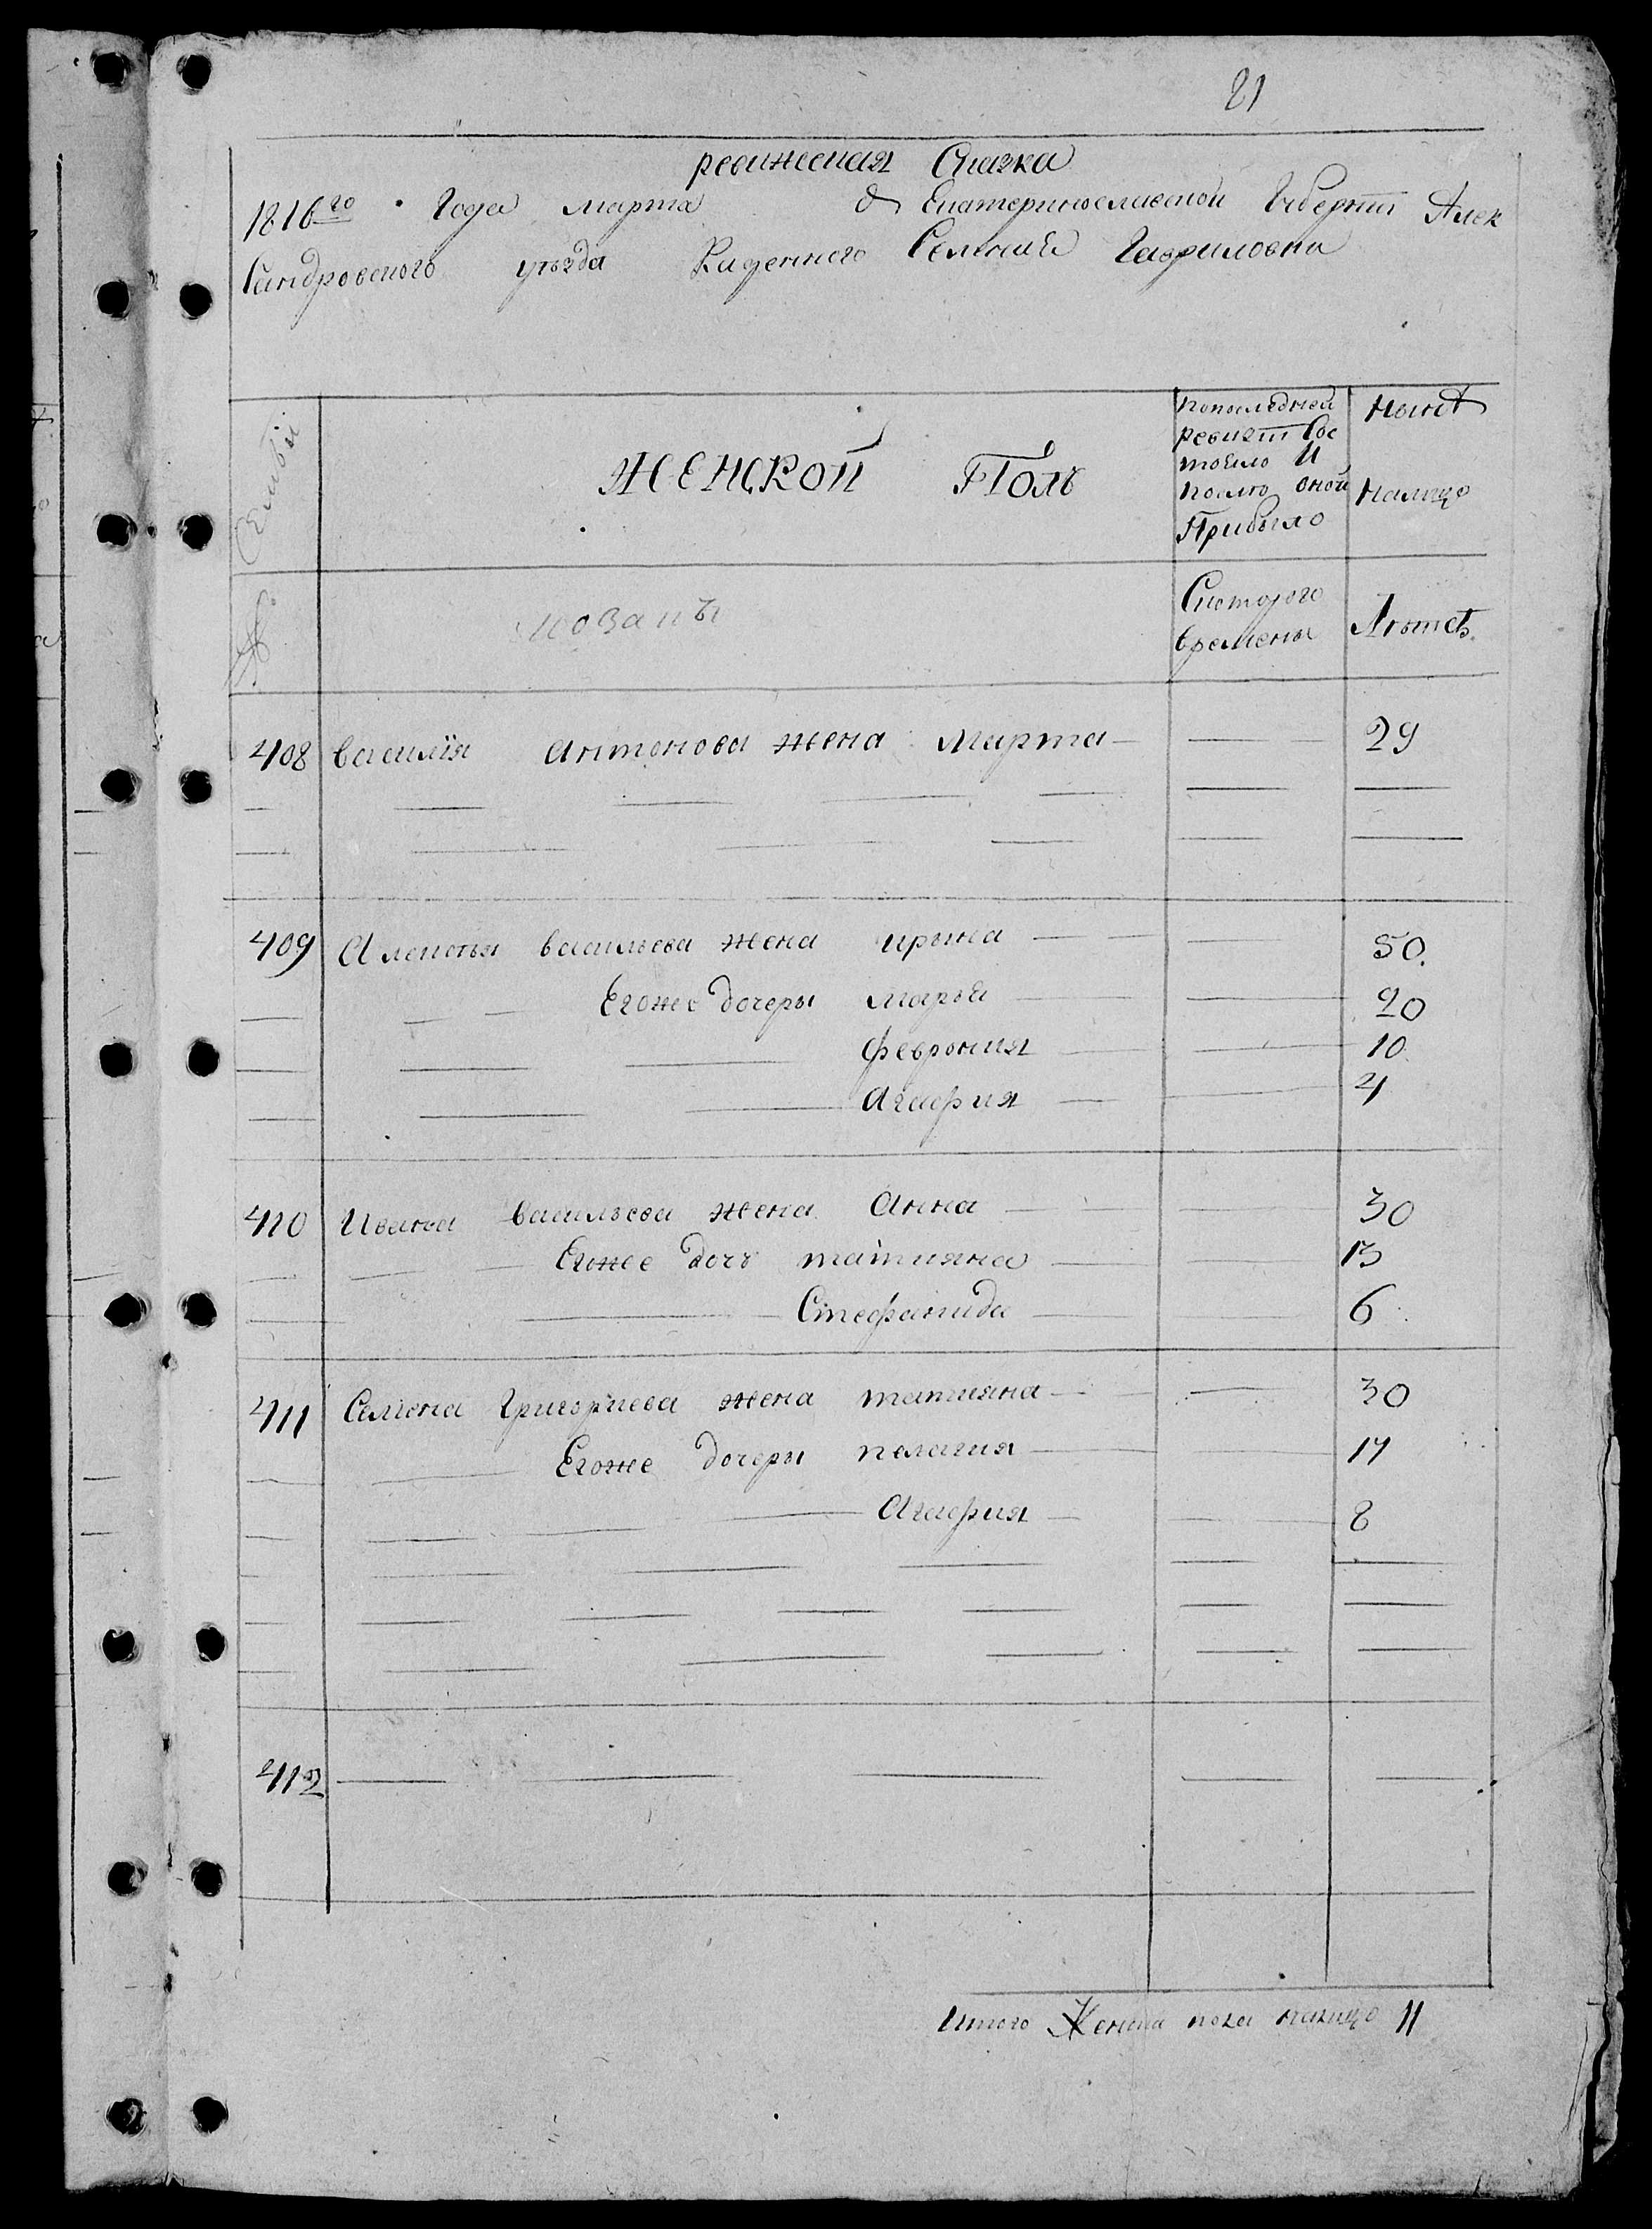 21
ревижсная Сказка
1816го Года марта д Екатеринославской Губернии Алек
Сандровского уѣзда Казенного Селения Гавриловки
Семьи
ЖЕНСКОЙ Полъ
попоследней
ревизіи Сос
тояло И
послѣ оной
Прибыло
Нынѣ
Налицо
№
козакъ
Скоторого
времены
Лѣтъ
408 василія Антонова жена Марта 29
409 Алексѣя васильева жена ирына 50.
Егоже дочеры марья 20
феврония 10
Агафия 4
410 Ивана васильева жена Анна 30
Егоже дочь татияна 13
Стефанида 6
411 Семена Григориева жена татияна 30
Егоже дочеры пелагия 14
Агафия 8
412
Итого Женска пола налицо 11